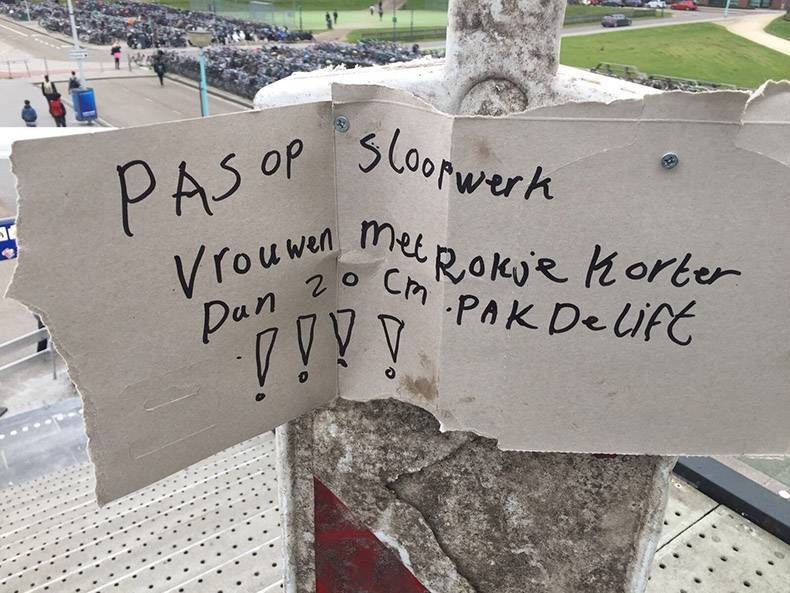 PAS OP Sloopwerk
Vrouwen met Rokje Korter
Dan 20 cm. PAK De lift
!!!!